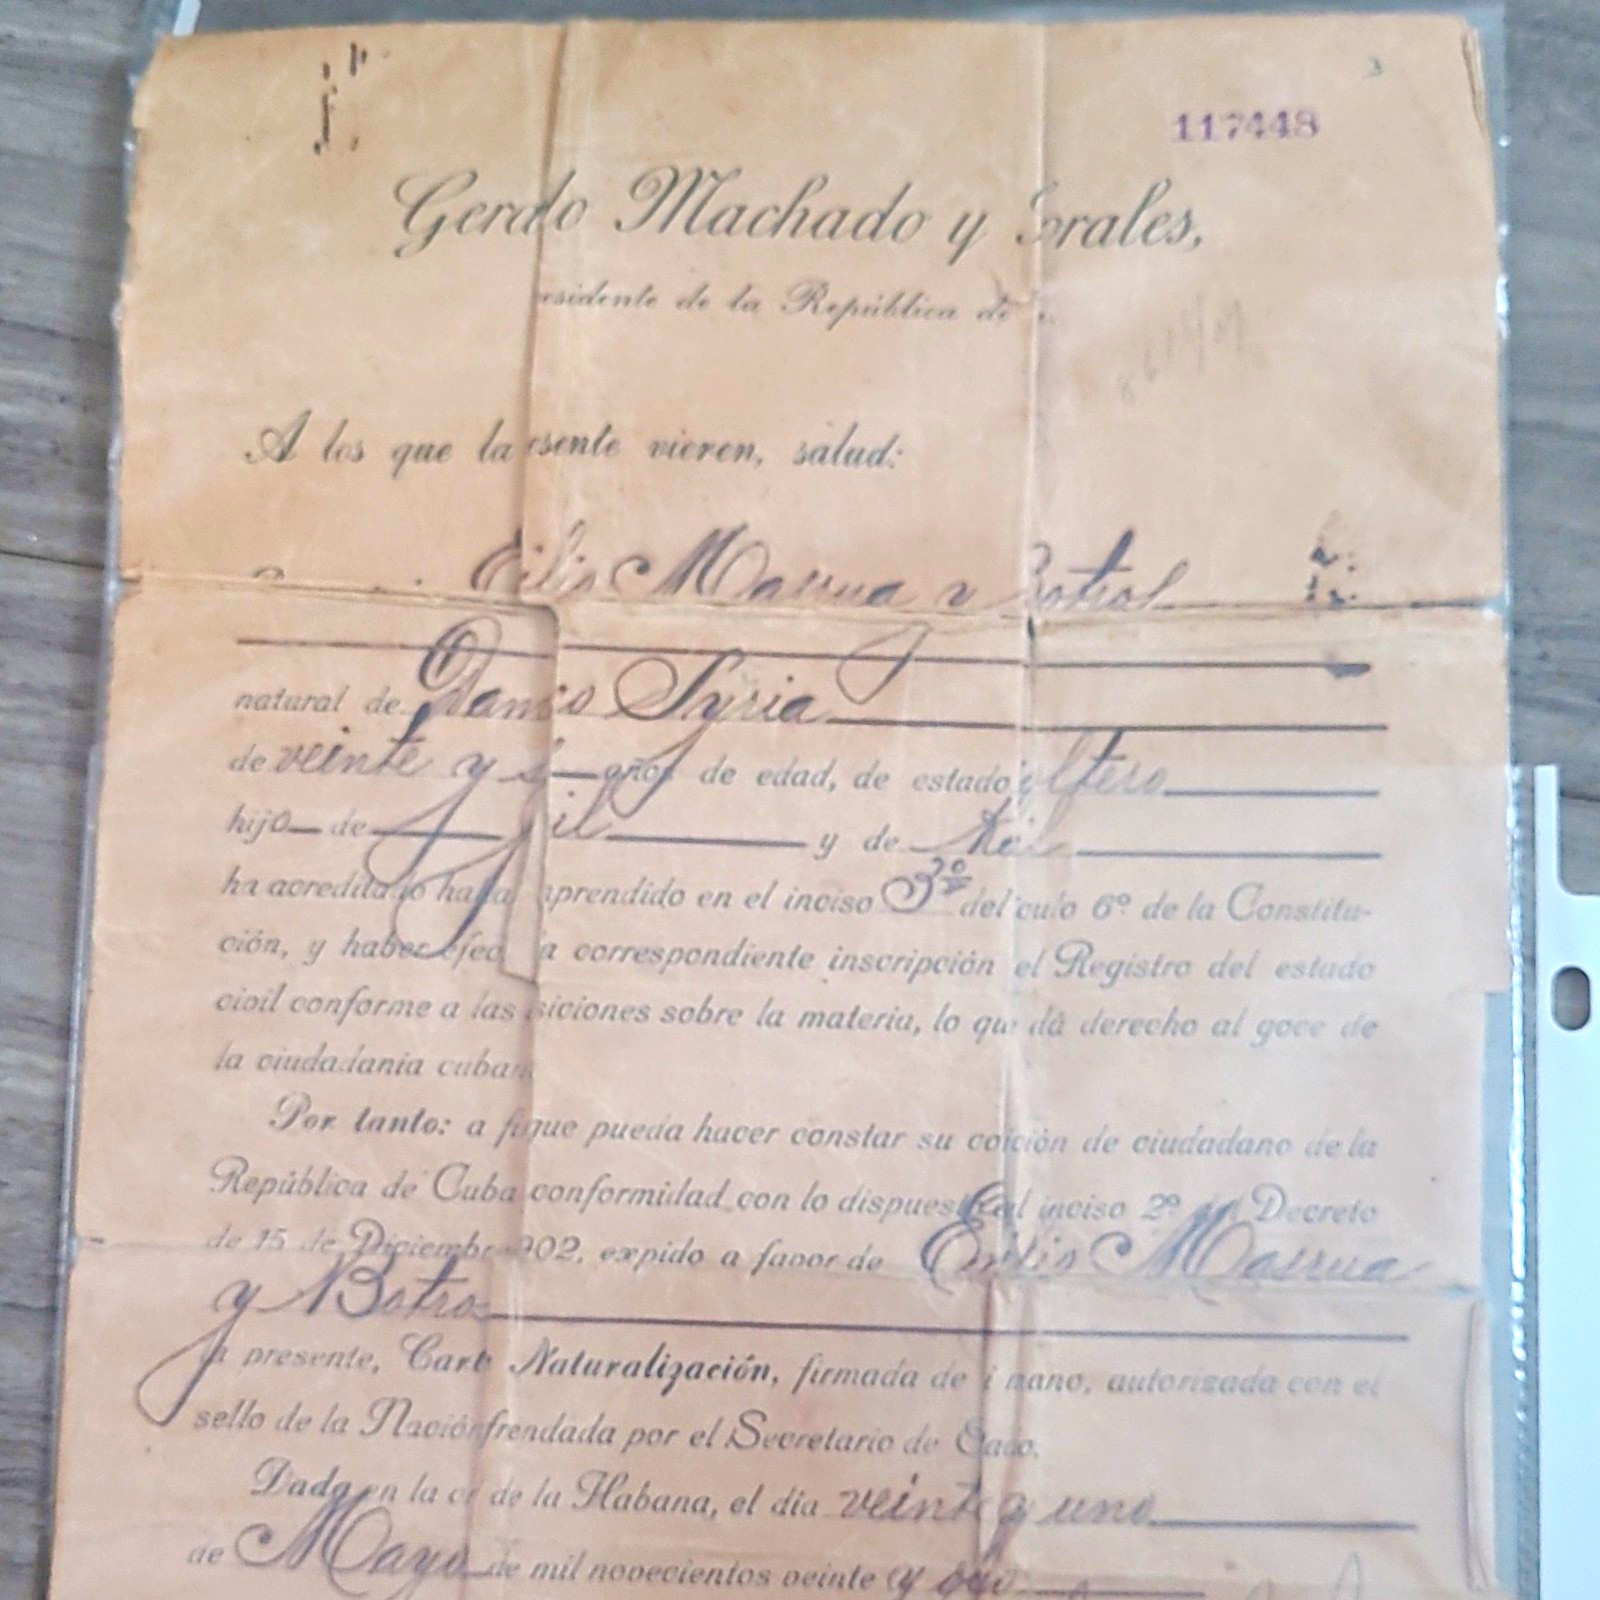 117448
Gerdo Machado y orales,
esidente de la República de
A los que la esente vieren, salud:
Masrua y Botros
natural de Damco Syria
de veinte y años de edad, de estado oltero
hijo de y de
ha acreditado ha prendido en el inciso 3º del culo 6º de la Constitu-
ción, y haber efec a correspondiente inscripción el Registro del estado
civil conforme a las siciones sobre la materia, lo que dá derecho al goce de
la ciudadanía cuban
Por tanto: a fi que pueda hacer constar su co ición de ciudadano de la
República de Cuba conformidad con lo dispues al inciso 2º del Decreto
de 15 de Diciembre 902, expido a favor de Emilio Masrua
y Botros
a presente, Cart Naturalización, firmada de i mano, autorizada con el
sello de la Nación frendada por el Secretario de
Dada en la de la Habana, el día veinte y uno
de Mayo de mil novecientos veinte y ocho